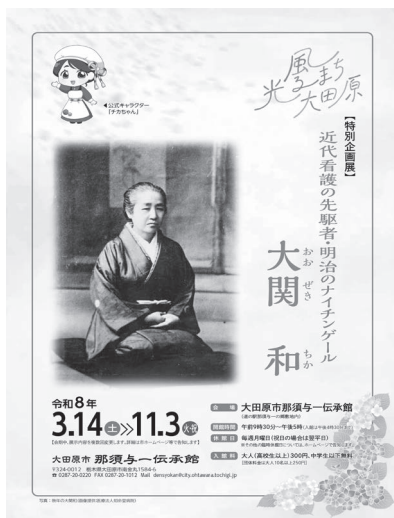 風るまち
光大田原
◀公式キャラクター
「チカちゃん」
【特別企画展】
近代看護の先駆者・明治のナイチンゲール
大関 和
おお ぜき ちか
令和8年
3.14土≫11.3火・祝
【会期中、展示内容を複数回変更します。詳細は市ホームページ等で告知します】
大田原市 那須与一伝承館
〒324-0012 栃木県大田原市南金丸1584-6
☎ 0287-20-0220 FAX 0287-20-1012 Mail densyokan@city.ohtawara.tochigi.jp
会場 大田原市那須与一伝承館
(道の駅那須与一の郷敷地内)
開館時間 午前9時30分～午後5時(入館は午後4時30分まで)
休館日 毎週月曜日(祝日の場合は翌平日)
※その他の臨時休館日については、ホームページで告知します。
入館料 大人(高校生以上)300円、中学生以下無料
(団体料金は大人10名以上250円)